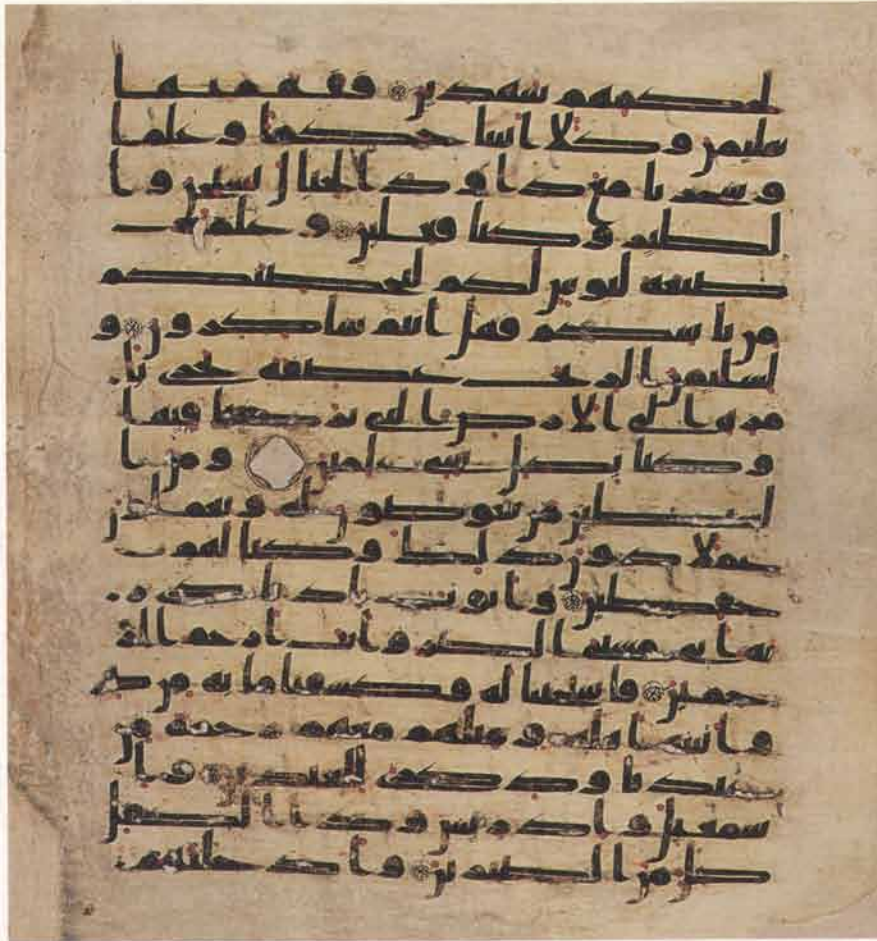 لحكمهم شهدين ففهمنها
سليمن وكلا اتينا حكما وعلما
وسخرنا مع داود الجبال يسبحن وا
لطير وكنا فعلين وعلمنه
صنعة لبوس لكم لتحصنكم
من باسكم فهل انتم شاكرون و
لسليمن الريح عصفة تجري با
مره الى الارض التي بركنا فيها
وكنا بكل شيء علمين ومن ا
لشيطين من يغوصون له ويعملون
عملا دون ذلك وكنا لهم
حفظين وايوب اذ نادى ر
به اني مسني الضر وانت ارحم الر
حمين فاستجبنا له فكشفنا ما به من ضر
واتينه اهله ومثلهم معهم رحمة من
عندنا وذكرى للعبدين وا
سمعيل وادريس وذا الكفل
كل من الصبرين وادخلنهم